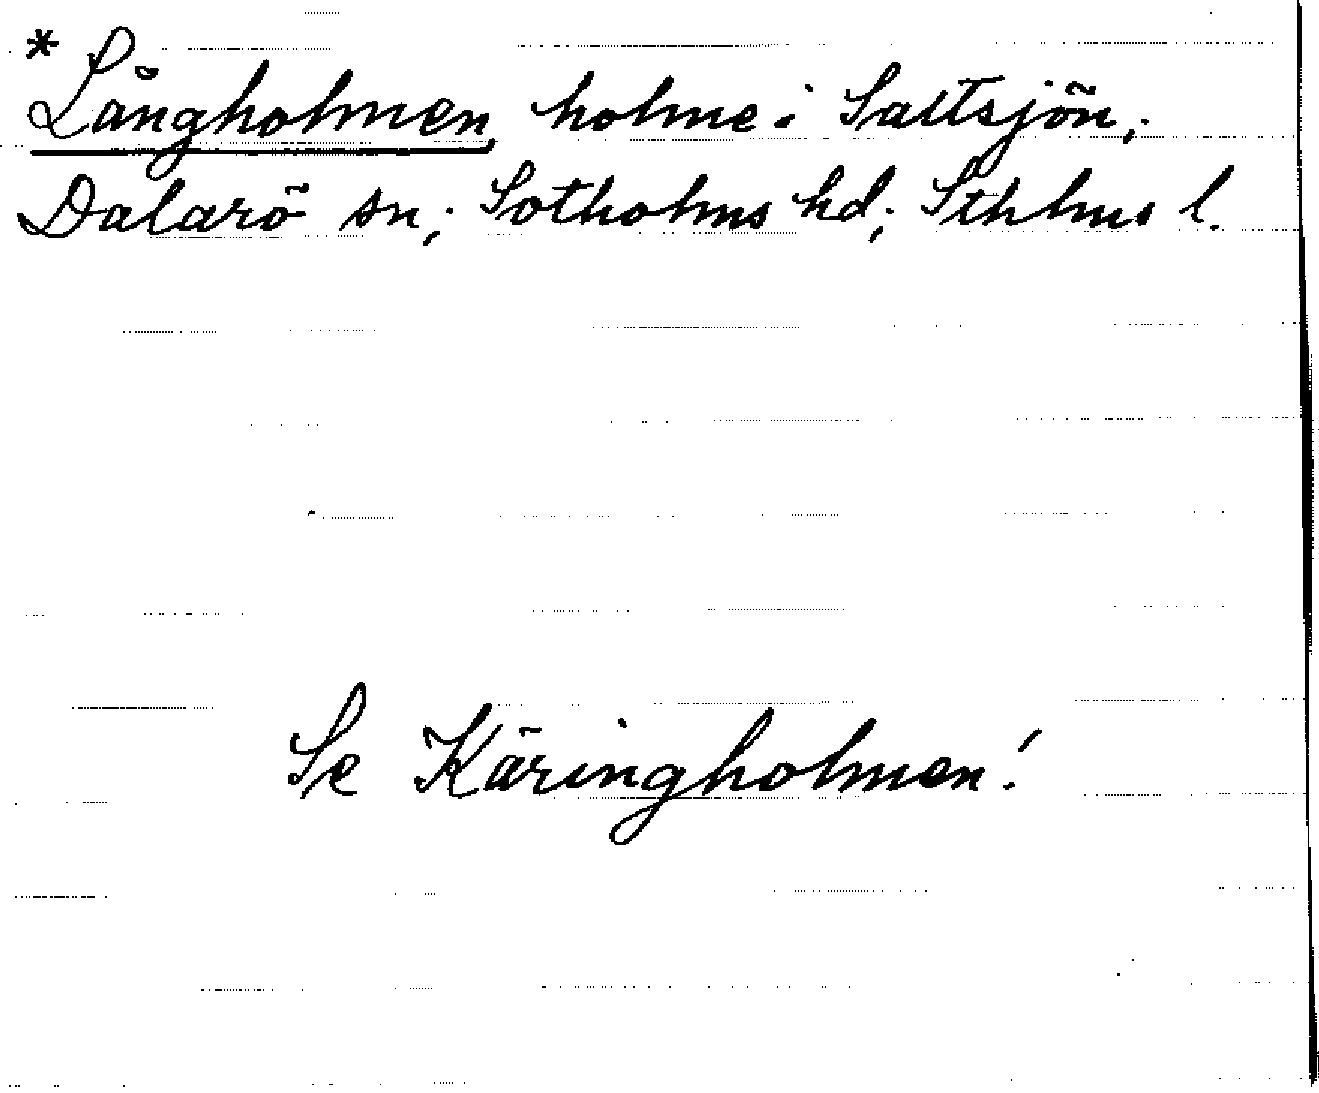 * Långholmen, holme i Saltsjön,
Dalarö sn; Sotholms hd; Sthlms l.
Se Käringholmen!